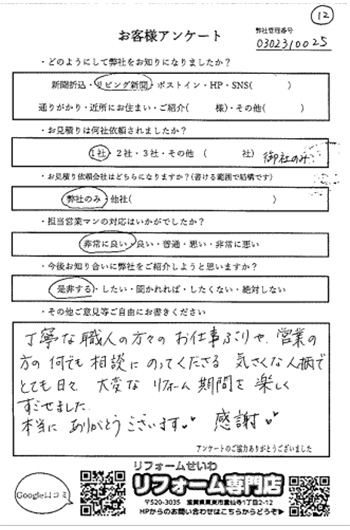 12
お客様アンケート
弊社管理番号
0302310025
・どのようにして弊社をお知りになりましたか?
新聞折込・リビング新聞・ポストイン・HP・SNS( )
通りがかり・近所にお住まい・ご紹介( 様)・その他( )
・お見積りは何社依頼されましたか?
1社・2社・3社・その他 ( 社) 御社のみ
・お見積り依頼会社はどちらになりますか?(書ける範囲で結構です)
弊社のみ・他社( )
・担当営業マンの対応はいかがでしたか?
非常に良い・良い・普通・悪い・非常に悪い
・今後お知り合いに弊社をご紹介しようと思いますか?
是非する・したい・聞かれれば・したくない・絶対しない
・その他ご意見等ご自由にお書きください
丁寧な職人の方々のお仕事ぶりや、営業の
方の何でも相談にのってくださる 気さくな人柄で
とても日々 大変な リフォーム期間を 楽しく
すごせました。
本当に ありがとうございます 感謝
アンケートのご協力ありがとうございました
Google口コミ
リフォームせいわ
リフォーム専門店
〒520-3035 滋賀県栗東市霊仙寺1丁目2-12
HPからのお問い合わせはこちらからどうぞ▶